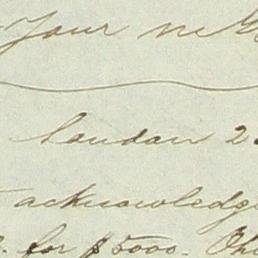 Your
London 2
acknowledge
for $5000. Oh